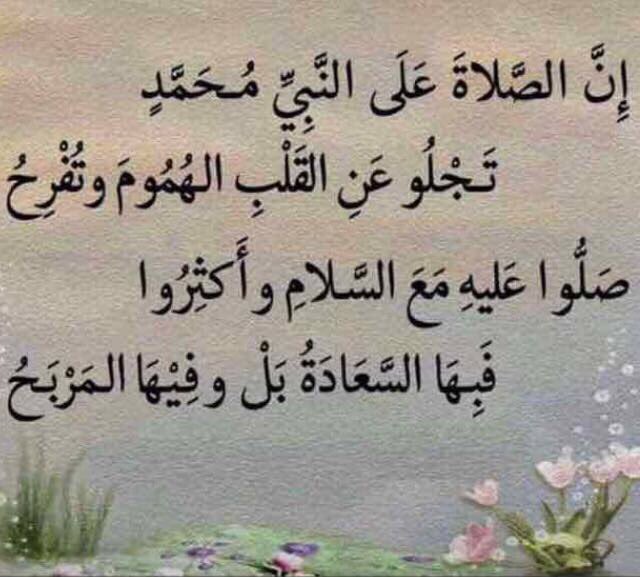 إِنَّ الصَّلاةَ عَلَى النَّبِيِّ مُحَمَّدٍ
تَجْلُو عَنِ القَلْبِ الهُمُومَ وتُفْرِحُ
صَلُّوا عَليهِ مَعَ السَّلامِ وأَكثِرُوا
فَبِهَا السَّعَادَةُ بَلْ وفِيْهَا المَرْبَحُ